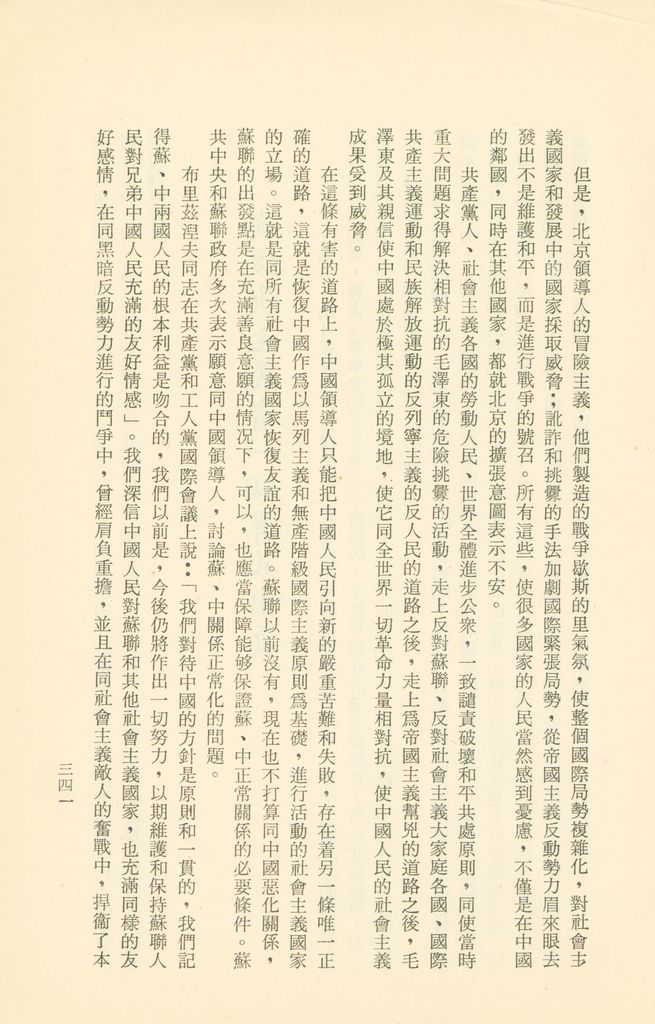 但是，北京領導人的冒險主義，他們製造的戰爭歇斯的里氣氛，使整個國際局勢複雜化，對社會主
義國家和發展中的國家採取威脅；訛詐和挑釁的手法加劇國際緊張局勢，從帝國主義反動勢力眉來眼去
發出不是維護和平，而是進行戰爭的號召。所有這些，使很多國家的人民當然感到憂慮，不僅是在中國
的鄰國，同時在其他國家，都就北京的擴張意圖表示不安。
共產黨人、社會主義各國的勞動人民、世界全體進步公衆，一致譴責破壞和平共處原則，同使當時
重大問題求得解決相對抗的毛澤東的危險挑釁的活動，走上反對蘇聯、反對社會主義大家庭各國、國際
共產主義運動和民族解放運動的反列寧主義的反人民的道路之後，走上爲帝國主義幫兇的道路之後，毛
澤東及其親信使中國處於極其孤立的境地，使它同全世界一切革命力量相對抗，使中國人民的社會主義
成果受到威脅。
在這條有害的道路上，中國領導人只能把中國人民引向新的嚴重苦難和失敗，存在着另一條唯一正
確的道路，這就是恢復中國作爲以馬列主義和無產階級國際主義原則爲基礎，進行活動的社會主義國家
的立場。這就是同所有社會主義國家恢復友誼的道路。蘇聯以前沒有，現在也不打算同中國惡化關係，
蘇聯的出發點是在充滿善良意願的情況下，可以，也應當保障能够保證蘇、中正常關係的必要條件。蘇
共中央和蘇聯政府多次表示願意同中國領導人，討論蘇、中關係正常化的問題。
布里茲涅夫同志在共產黨和工人黨國際會議上說：「我們對待中國的方針是原則和一貫的，我們記
得蘇、中兩國人民的根本利益是吻合的，我們以前是，今後仍將作出一切努力，以期維護和保持蘇聯人
民對兄弟中國人民充滿的友好情感」。我們深信中國人民對蘇聯和其他社會主義國家，也充滿同樣的友
好感情，在同黑暗反動勢力進行的鬥争中，曾經肩負重擔，並且在同社會主義敵人的奮戰中，捍衞了本
三四一